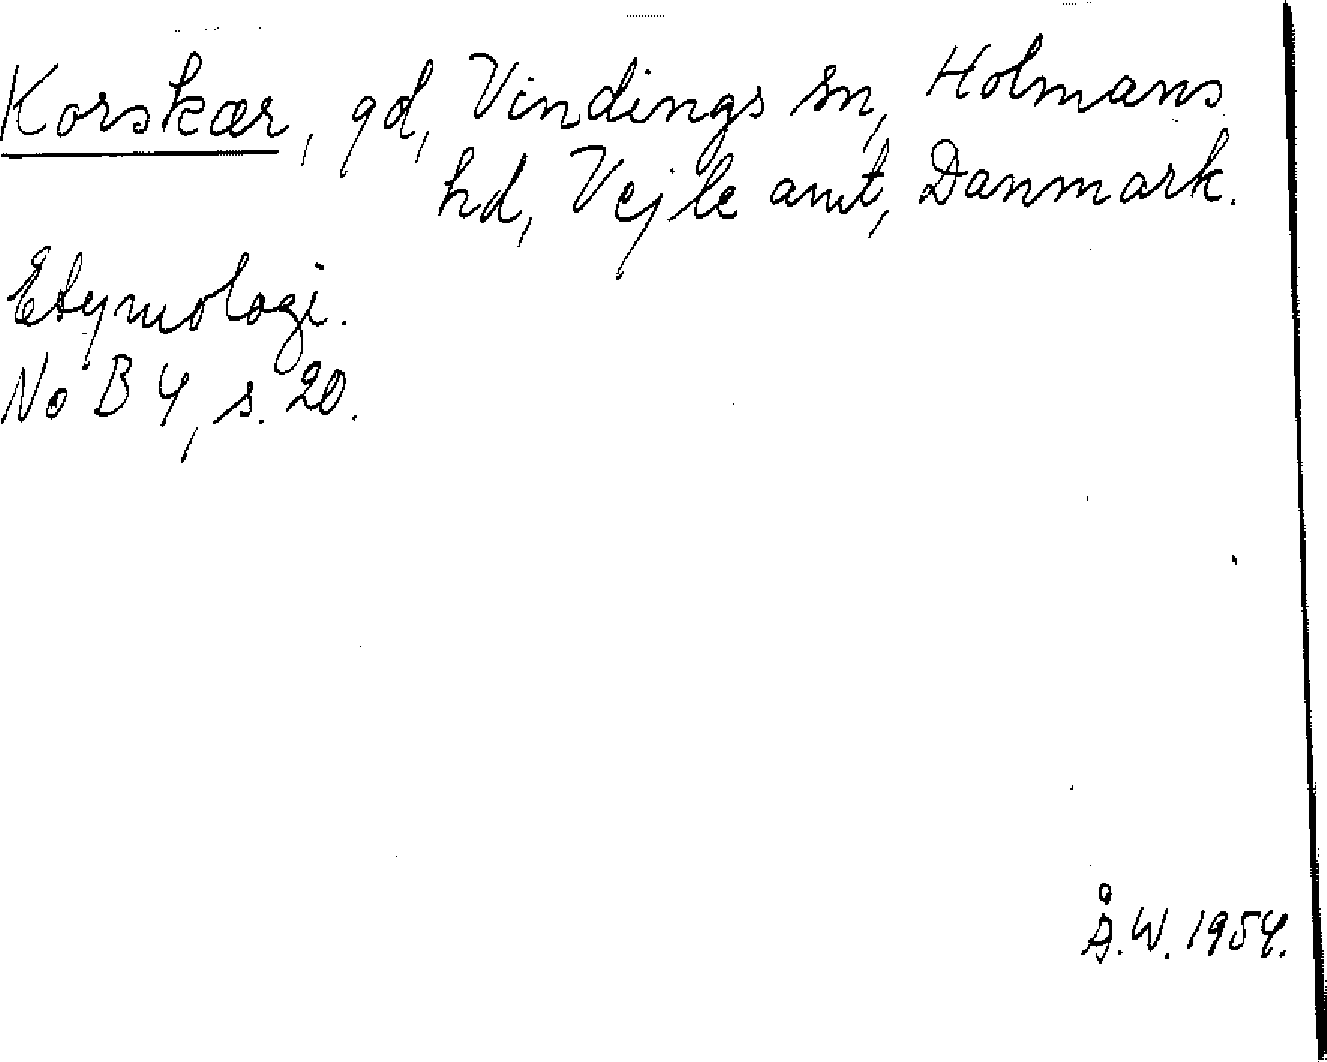 Korskær, gd, Vindings sn, Holmans
hd, Vejle amt, Danmark.
Etymologi.
NoB 4, s. 20.
Å.W. 1954.